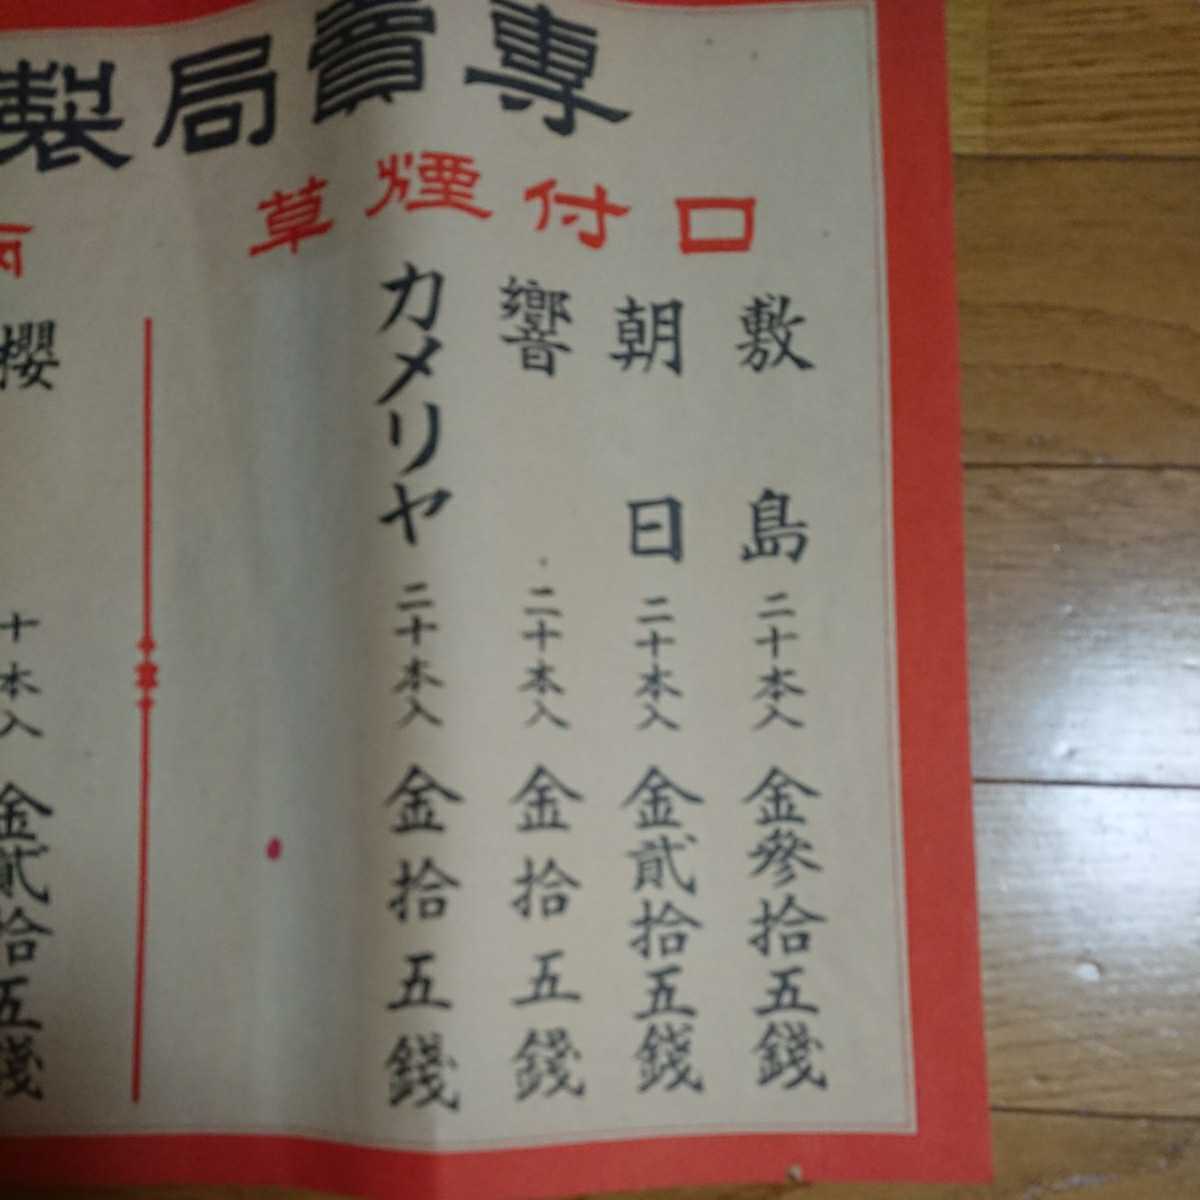 專賣局製
口付煙草
敷島 二十本入 金參拾五錢
朝日 二十本入 金貳拾五錢
響 二十本入 金拾五錢
カメリヤ 二十本入 金拾五錢
櫻 十本入 金貳拾五錢